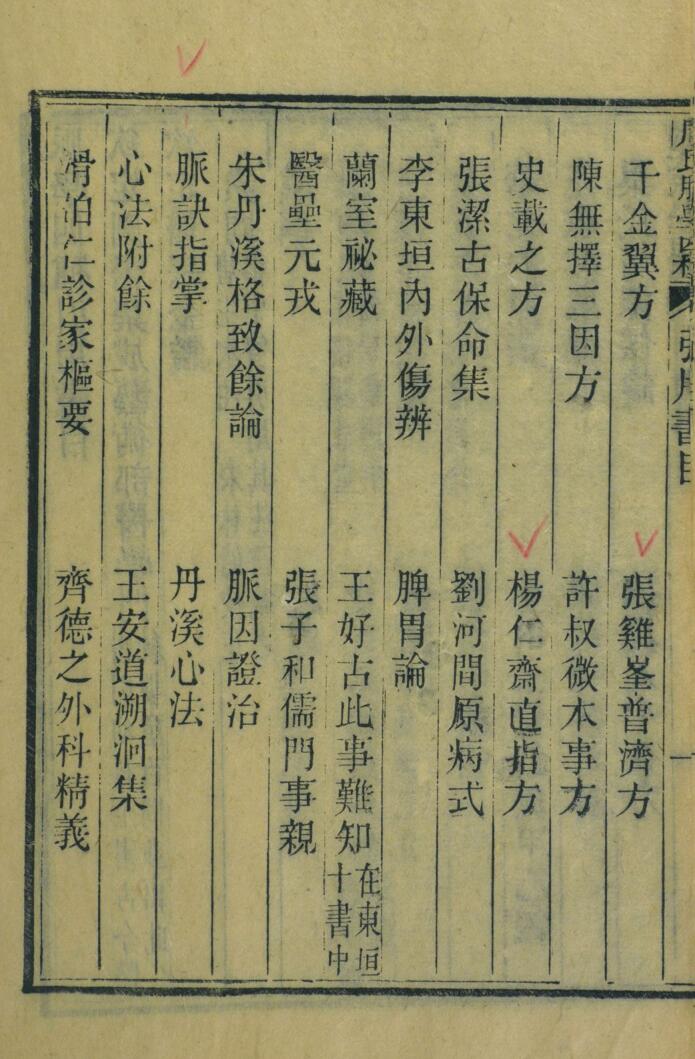 千金翼方　張雞峯普濟方
陳無擇三因方　許叔微本事方
史載之方　楊仁齋直指方
張潔古保命集　劉河間原病式
李東垣內外傷辨　脾胃論
蘭室祕藏　王好古此事難知在東垣十書中
醫壘元戎　張子和儒門事親
朱丹溪格致餘論　脈因證治
脈訣指掌　丹溪心法
心法附餘　王安道溯洄集
滑伯仁診家樞要　齊德之外科精義